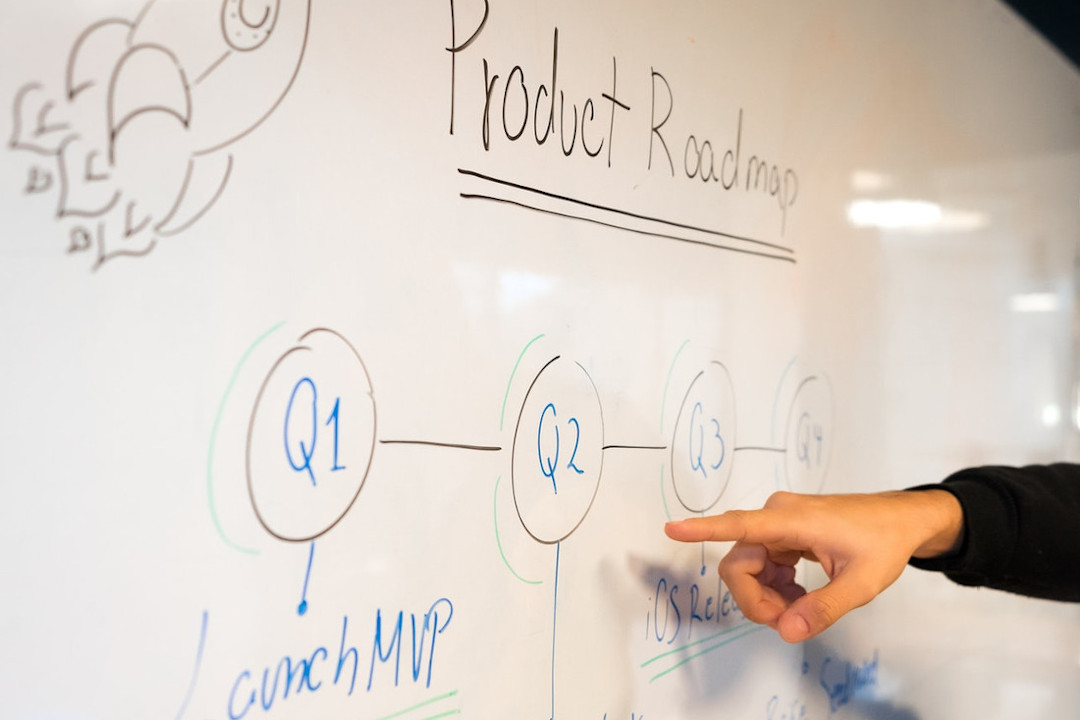 Product Roadmap
Q1 Q2 Q3 Q4
Launch MVP
iOS